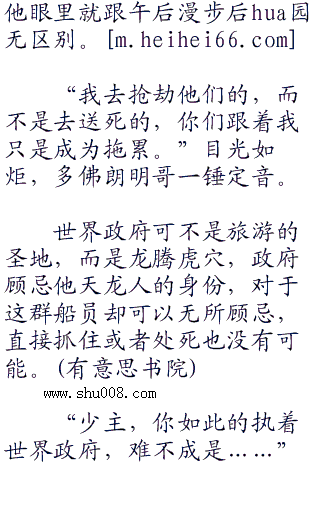 他眼里就跟午后漫步后hua园
无区别。[m.heihei66.com]
“我去抢劫他们的，而
不是去送死的，你们跟着我
只是成为拖累。”目光如
炬，多佛朗明哥一锤定音。
世界政府可不是旅游的
圣地，而是龙腾虎穴，政府
顾忌他天龙人的身份，对于
这群船员却可以无所顾忌，
直接抓住或者处死也没有可
能。(有意思书院)
www.shu008.com
“少主，你如此的执着
世界政府，难不成是……”